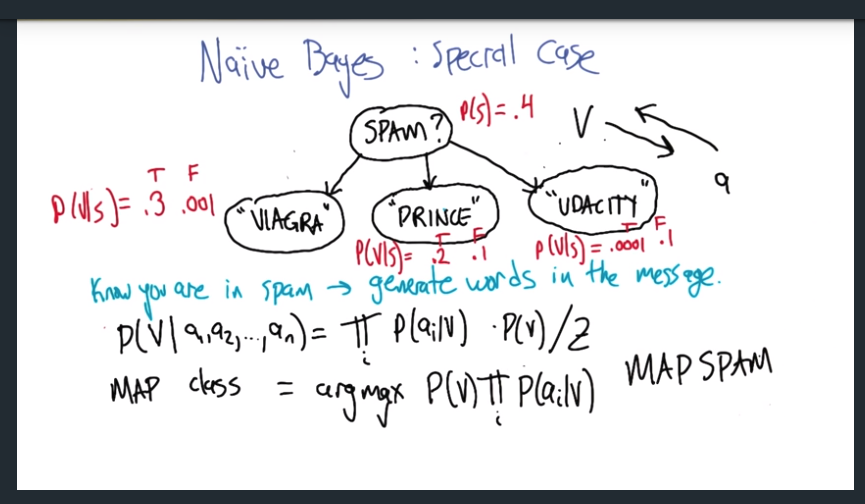 Naïve Bayes : Special Case
SPAM? P(S)= .4
V
a
T F
P(V|S)= .3 .001
"VIAGRA" "PRINCE" "UDACITY"
T F T F
P(V|S)= .2 .1 P(V|S) = .0001 .1
Know you are in spam → generate words in the message.
P(V|a₁,a₂,...,aₙ)= ∏ᵢ P(aᵢ|V) · P(V)/Z
MAP class = argmax P(V) ∏ᵢ P(aᵢ|V) MAP SPAM